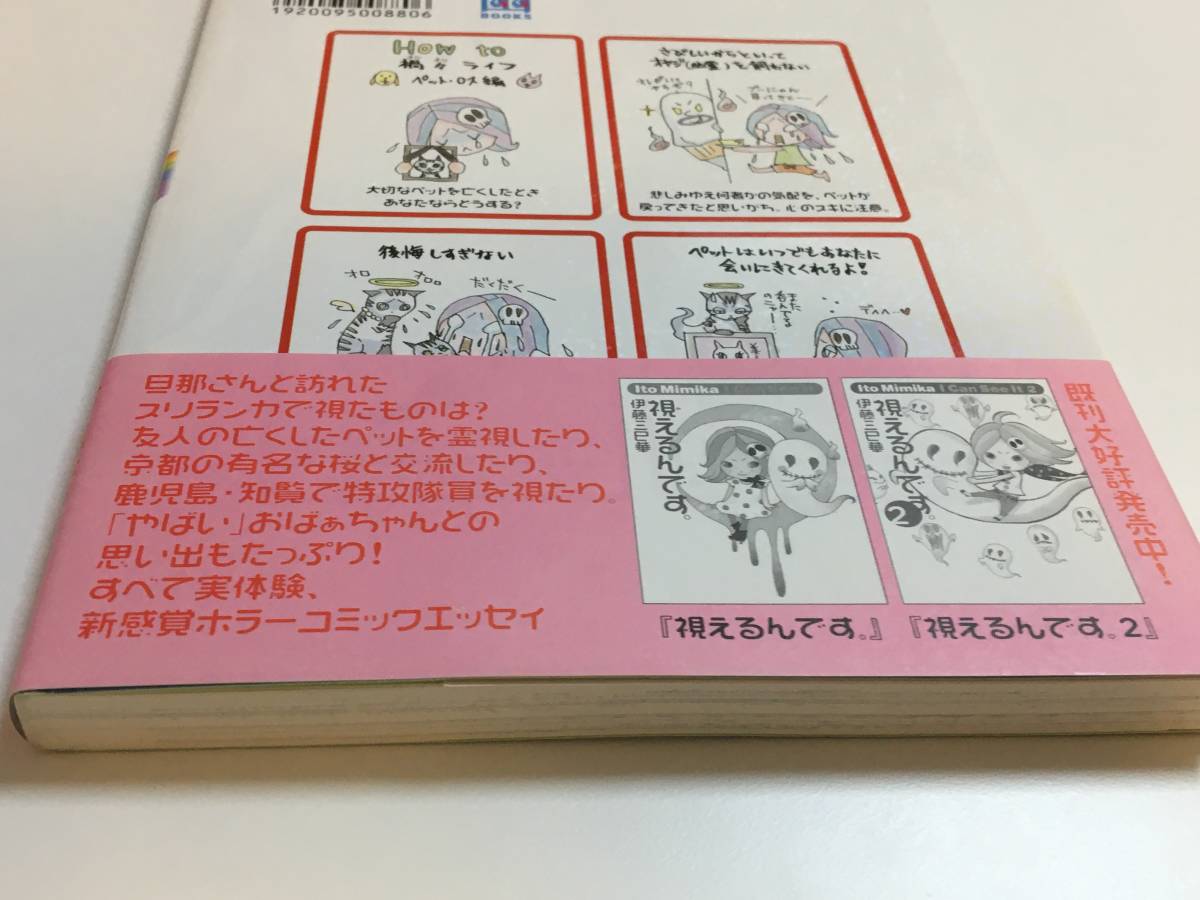 1920095008806
BOOKS
How to
ライフ
ペット・ロス編
大切なペットを亡くしたとき
あなたならどうする?
さびしいからといって
オヤジ(幽霊)を飼わない
悲しみゆえ何者かの気配を、ペットが
戻ってきたと思いがち。心のスキに注意。
後悔しすぎない
オロ
オロ。
だくだくー
ペットはいつでもあなたに
会いにきてくれるよ!
デヘヘ…♥
旦那さんと訪れた
スリランカで視たものは?
友人の亡くしたペットを霊視したり、
京都の有名な桜と交流したり、
鹿児島・知覧で特攻隊員を視たり。
「やばい」おばぁちゃんとの
思い出もたっぷり!
すべて実体験、
新感覚ホラーコミックエッセイ
Ito Mimika I Can See It
視えるんです。
伊藤三巳華
『視えるんです。』
Ito Mimika I Can See It 2
視えるんです。
2
伊藤三巳華
『視えるんです。2』
既刊大好評発売中!